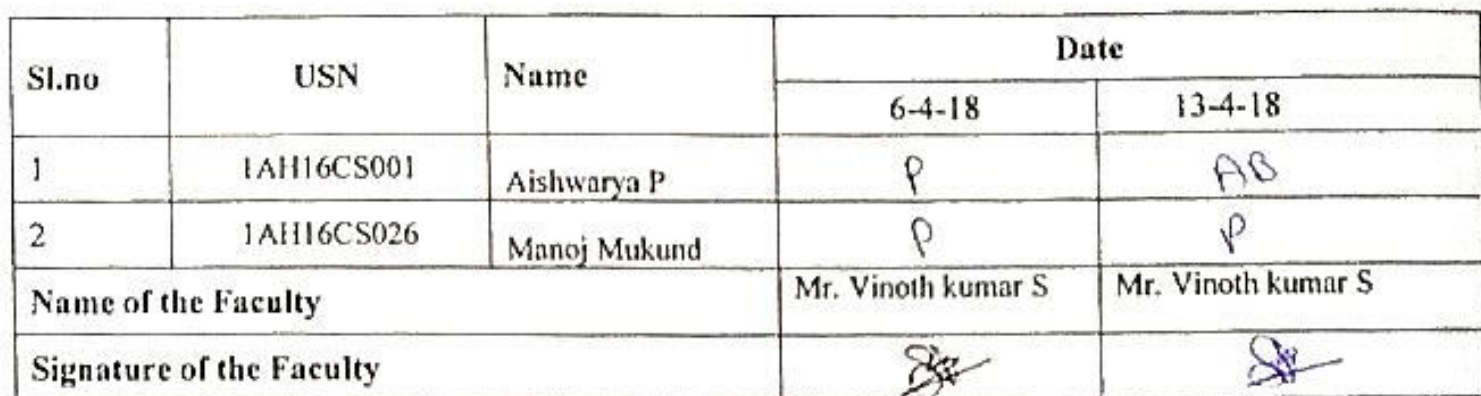 Sl.no USN Name Date
6-4-18 13-4-18
1 1AH16CS001 Aishwarya P P AB
2 1AH16CS026 Manoj Mukund P P
Name of the Faculty Mr. Vinoth kumar S Mr. Vinoth kumar S
Signature of the Faculty